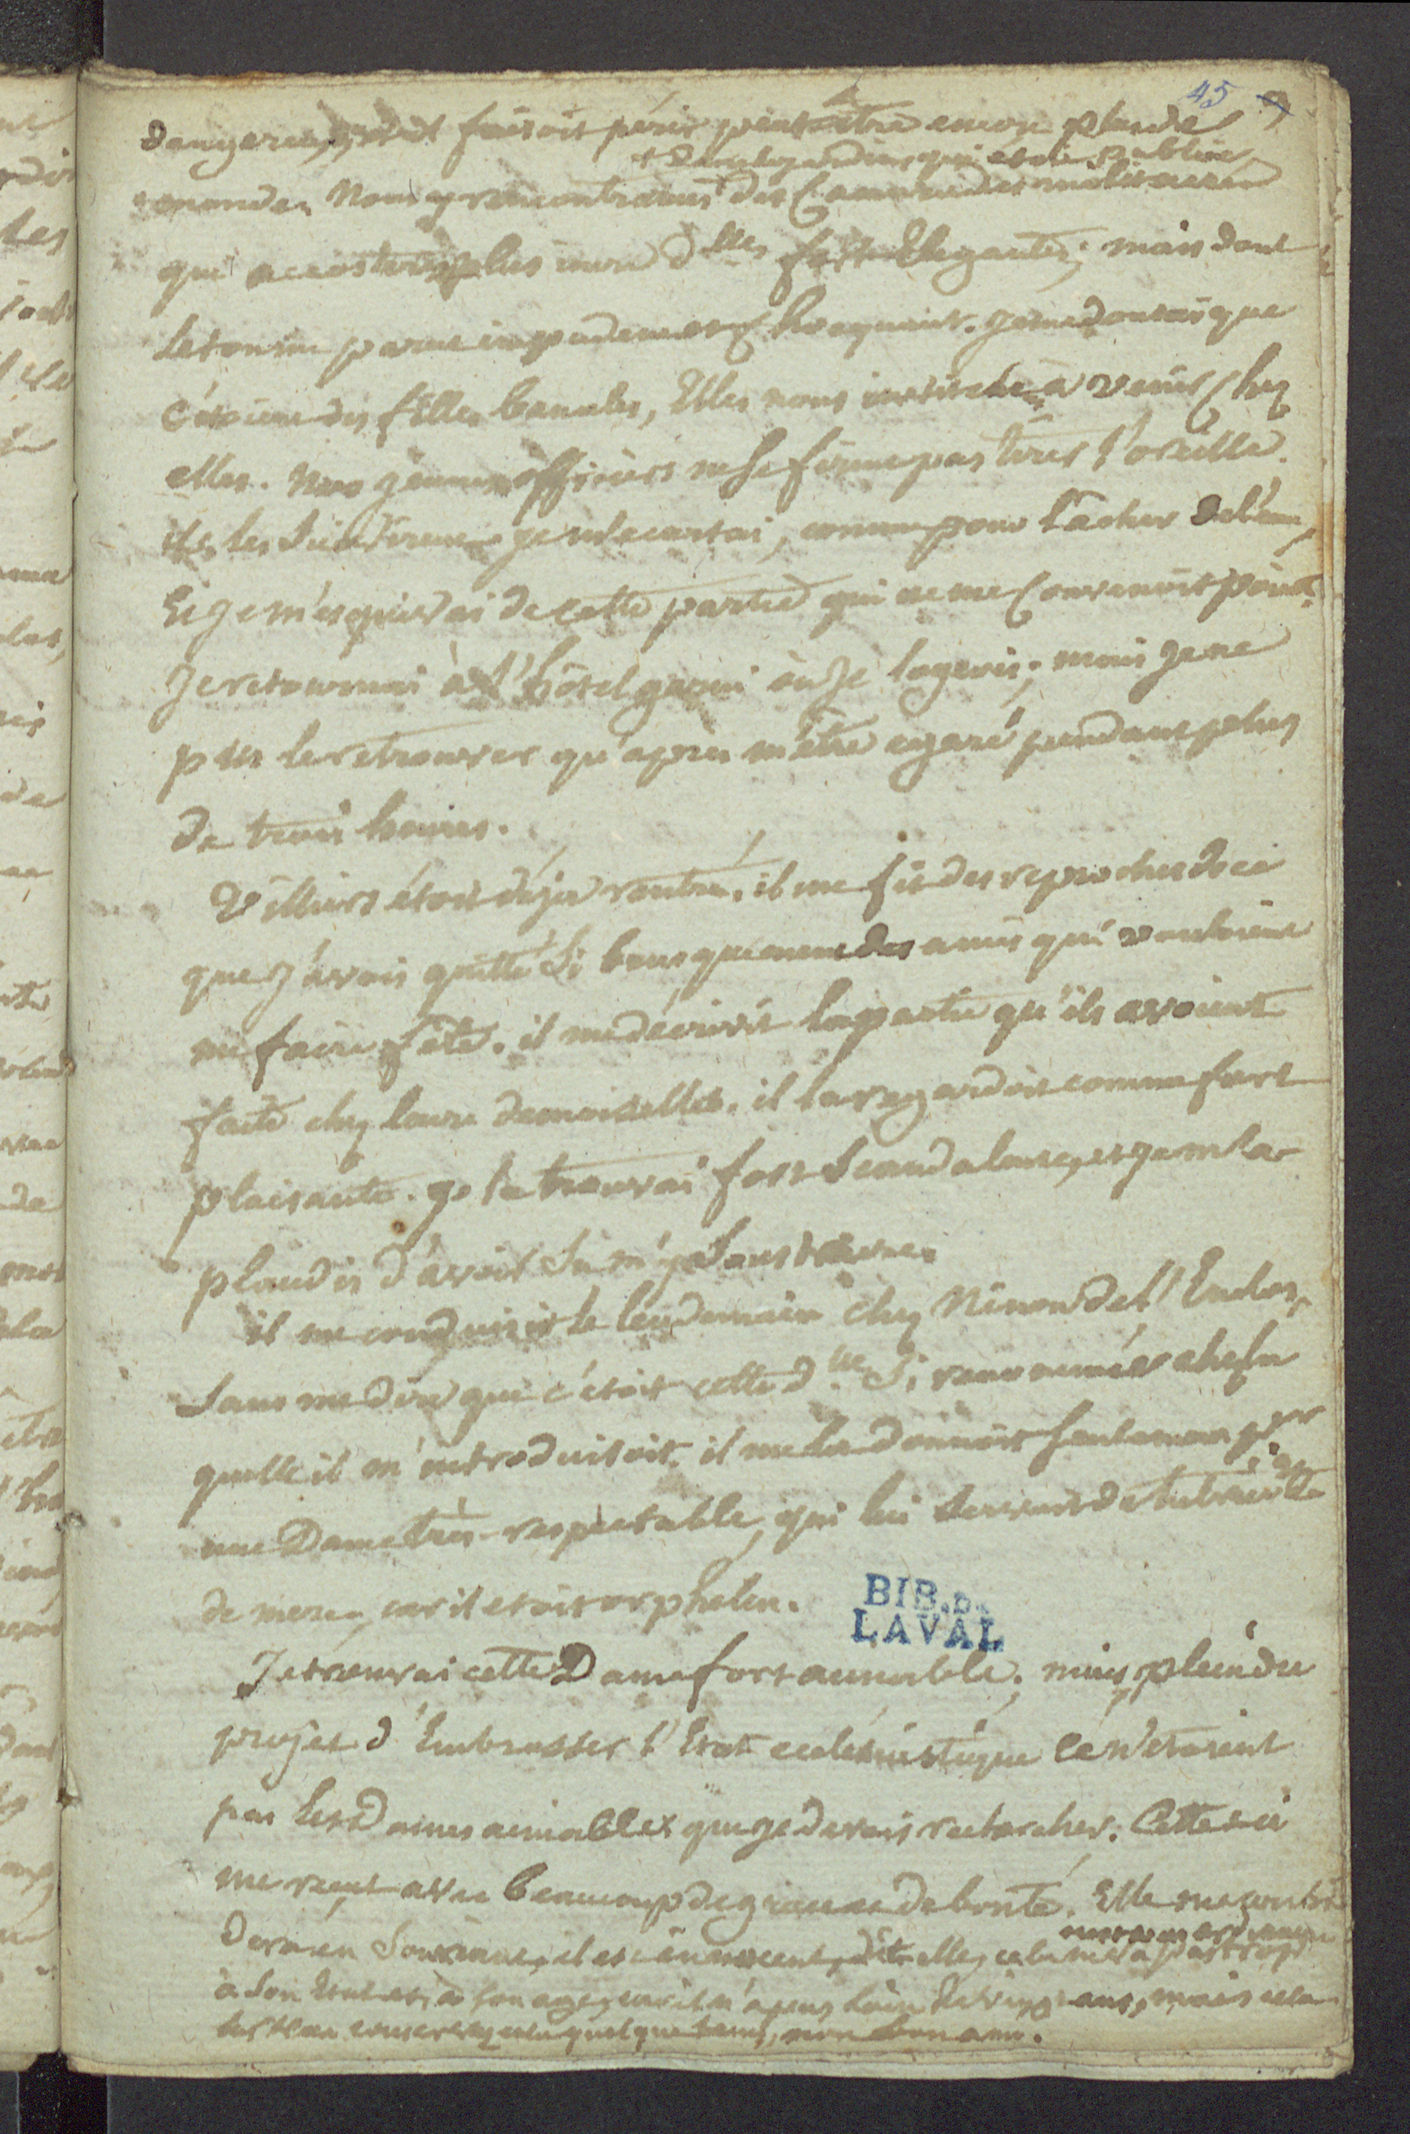 45
dangereux, et faisoit périr peut être encore plus de
+ dans les jardins qui étoient publics
monde. Nous y rencontrames des Camarades militaires
qui accosterent plusieurs dlles fort Elegantes; mais dont
le ton me parut impudent et choquant. je me doutai que
c'étoient des filles banales, Elles nous invitèrent à venir chez
elles. Nos jeunes officiers ne se firent pas tirer l'oreille.
ils les suivirent je m'écartai, comme pour lacher de l'eau,
Et je m'esquivai de cette partie qui ne me Convenoit point.
Je retournai à l'hôtel garni où Je logeois; mais je ne
pus le retrouver qu'apres m'être egaré pendant plus
de trois heures.
Villiers étoit déja rentré. il me fit des reproches de ce
que j'avois quitté si brusquement des amis qui vouloient
me faire fête. il me décrivit la partie qu'ils avoient
faite chez leurs demoiselles. il la regardoit comme fort
plaisante. je la trouvai fort scandaleuse, et je m'ap-
plaudis d'avoir su m'y soustraire.
il me conduisit le lendemain chez Ninon de l'Enclos,
sans me dire que c'étoit cette dlle si renommée chez la
quelle il m'introduisoit. il me la donnoit seulement pour
une Dame très-respectable, qui lui servoit de tutrice et
de mere, car il etoit orphelin.
BIB. D.
LAVAL
Je trouvai cette Dame fort aimable; mais, plein du
projet d'Embrasser l'Etat ecclésiastique ce n'étoient
pas les Dames aimables que je devois rechercher. Cette-ci
me reçut avec beaucoup de grace et de bonté. Elle me
en souriant, il est innocent, dit elle, cela ne va pas trop
à son Etat et à son age, car il n'a pas loin de vingt ans, mais
conservez cela quelque tems, mon bon ami.